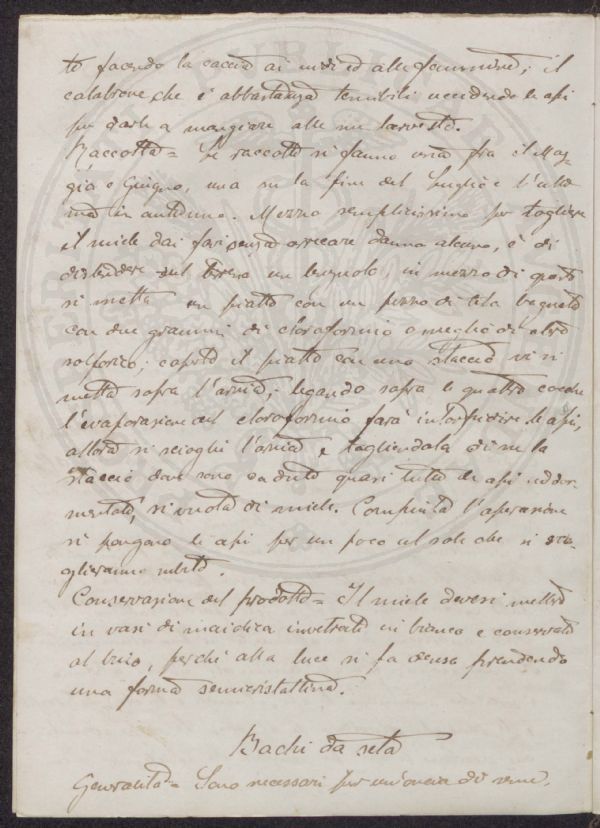 to facendo la caccia ai nidi ed alle femmine; il
calabrone che è abbastanza temibile uccidendo le api
per darle a mangiare alle sue larve sta.
Raccolta = Le raccolte si fanno verso fra il Mag-
gio e Giugno, una su la fine del luglio e l'ulti-
ma in autunno. Mezzo semplicissimo per togliere
il miele dai favi senza arrecare danno alcuno, è di
distendere sul terreno un lenzuolo, in mezzo di questo
si metta un piatto con un pezzo di tela bagnato
con due grammi di cloroformio o meglio di etere
solforico; coperto il piatto con uno staccio vi si
metta sopra l'arnia; legando sopra le quattro cocche
l'evaporazione del cloroformio farà intorpidire le api,
allora si sciogli l'arnia e togliendola di su lo
staccio dove sono cadute quasi tutte le api addor-
mentate, si vuota di miele. Compiuta l'operazione
si pongono le api per un poco al sole che si sve-
glieranno subito.
Conservazione del prodotto = Il miele devesi mettere
in vasi di maiolica invetriati in bianco e conservato
al buio, perchè alla luce si fa denso prendendo
una forma semicristallina.
Bachi da seta
Generalità = Sono necessari per un'oncia di seme,